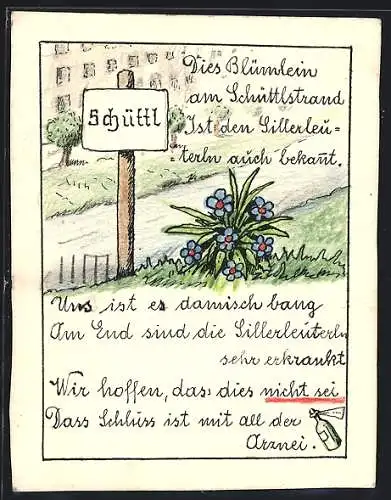 Dies Blümlein
am Schüttlstrand
Ist den Sillerleu=
=terln auch bekan̅t.
Schüttl
Uns ist es damisch bang
Am End sind die Sillerleuterln
sehr erkrankt
Wir hoffen, das: dies nicht sei
Dass Schluss ist mit all der
Arznei.